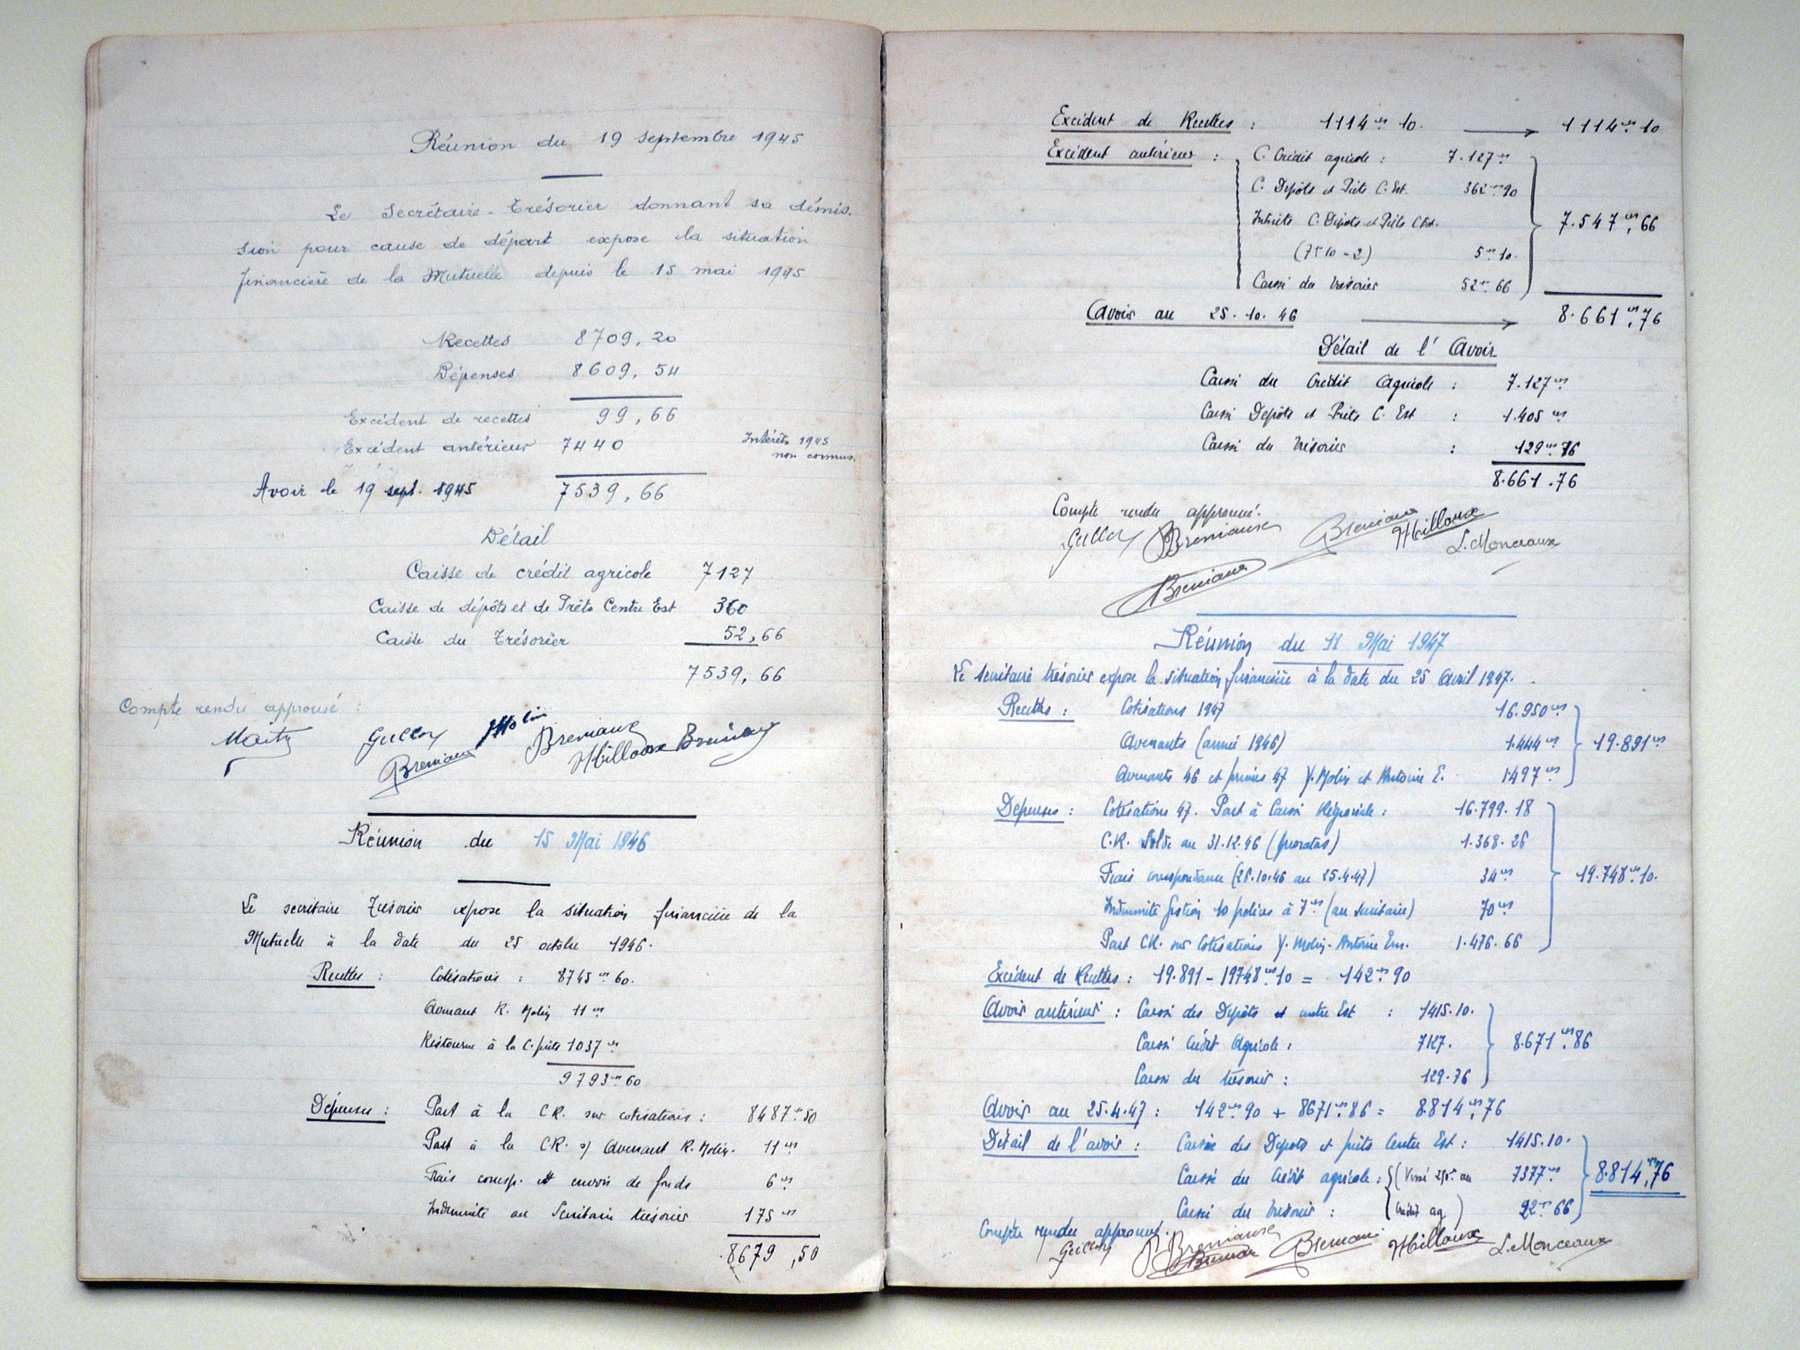 Réunion du 19 septembre 1945
Le Secrétaire-Trésorier donnant sa démis-
sion pour cause de départ expose la situation
financière de la Mutuelle depuis le 15 mai 1945
Recettes 8709,20
Dépenses 8609,54
Excédent de recettes 99,66
Excédent antérieur 7440
Intérêts 1945
non connus.
Avoir le 19 sept. 1945 7539,66
Détail
Caisse de crédit agricole 7127
Caisse de dépôts et de Prêts Centre Est 360
Caisse du Trésorier 52,66
7539,66
Compte rendu approuvé :
Gullon Molin Bremaux
Bremaux Hilloux
Réunion du 15 Mai 1946
Le secrétaire trésorier expose la situation financière de la
Mutuelle à la date du 25 octobre 1946.
Recettes : Cotisations : 8745 frs 60.
Avenant R. Molin 11 frs
Ristourne à la C. 1037 frs
9793 frs 60
Dépenses : Part à la C.R. sur cotisations : 8487 frs 50
Part à la C.R. s/ Avenant R. Molin. 11 frs
Frais corresp. et envois de fonds 6 frs
Indemnité au Secrétaire trésorier 175 frs
8679,50
Excédent de Recettes : 1114 frs 10. → 1114 frs 10
Excédent antérieur : C. Crédit agricole : 7.127 frs
C. Dépôts et Prêts C. Est. 362 frs 90
Intérêts C. Dépôts et Prêts C. Est. 7.547 frs,66
(7 frs 10 - 2) 5 frs 10.
Caisse du trésorier 52 frs 66
Avoir au 25.10.46 → 8.661 frs,76
Détail de l'Avoir
Caisse du Crédit Agricole : 7.127 frs
Caisse Dépôts et Prêts C. Est : 1.405 frs
Caisse du trésorier : 129 frs 76
8.661.76
Compte rendu approuvé.
Gullon Bremaux Bremaux Hilloux
L. Monceaux
Bremaux
Réunion du 11 Mai 1947
Le secrétaire trésorier expose la situation financière à la date du 25 Avril 1947.
Recettes : Cotisations 1947 16.950 frs
Avenants (année 1946) 1.444 frs 19.891 frs
Avenants 46 et primes 47 Y. Molin et Antoine E. 1497 frs
Dépenses : Cotisations 47. Part à Caisse Régionale : 16.799.18
C.R. Solde au 31.12.46 (proratas) 1.368.26
Frais correspondance (25.10.46 au 25.4.47) 34 frs 19.748 frs 10.
Indemnité gestion 10 polices à 7 frs (au secrétaire) 70 frs
Part CR. sur Cotisations Y. Molin - Antoine Em. 1.476.66
Excédent de Recettes : 19.891 - 19748 frs 10 = 142 frs 90
Avoir antérieur : Caisse des Dépôts et centre Est : 1415.10.
Caisse Crédit Agricole : 7127. 8.671 frs,86
Caisse du trésorier : 129.76
Avoir au 25.4.47 : 142 frs 90 + 8671 frs 86 = 8.814 frs,76
Détail de l'avoir : Caisse des Dépôts et prêts Centre Est : 1415.10.
Caisse du Crédit agricole : (Versé 250 frs au 7377 frs 8.814 frs,76
Caisse du trésorier : Crédit ag) 22 frs 66
Compte rendu approuvé.
Gullon Bremaux Bremaux Hilloux L. Monceaux
Bremaux